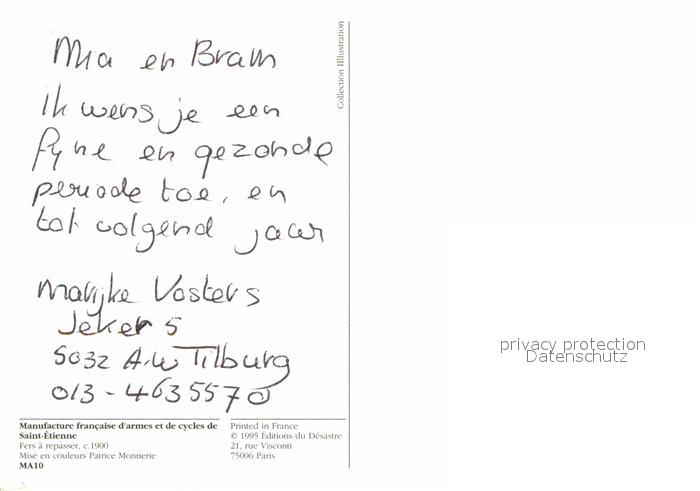 Mia en Bram
Ik wens je een
fijne en gezonde
periode toe, en
tot volgend jaar
Marijke Vosters
Jeker 5
5032 AW Tilburg
013-4635570
Manufacture française d'armes et de cycles de
Saint-Étienne
Fers à repasser, c.1900
Mise en couleurs Patrice Monnerie
MA10
Printed in France
© 1995 Éditions du Désastre
21, rue Visconti
75006 Paris
Collection IIllustration
privacy protection
Datenschutz